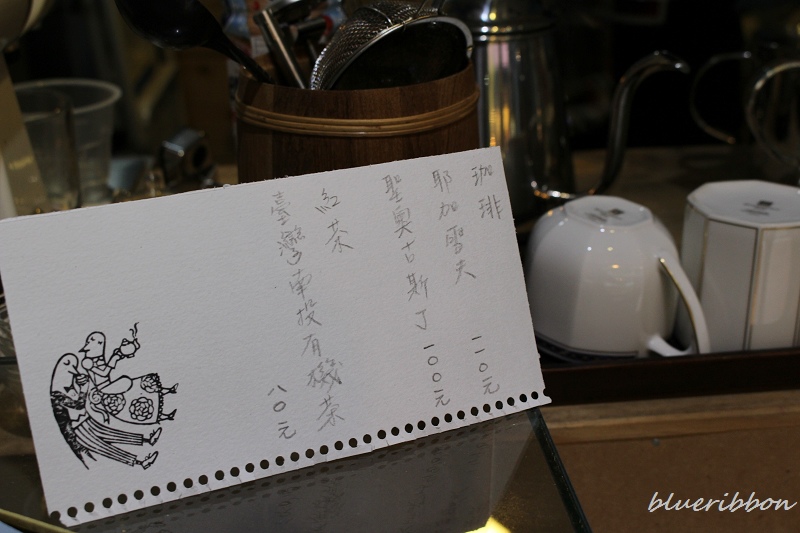 珈琲
耶加雪夫 一一〇元
聖奧古斯丁 一〇〇元
紅茶
臺灣南投有機茶
八〇元
blueribbon